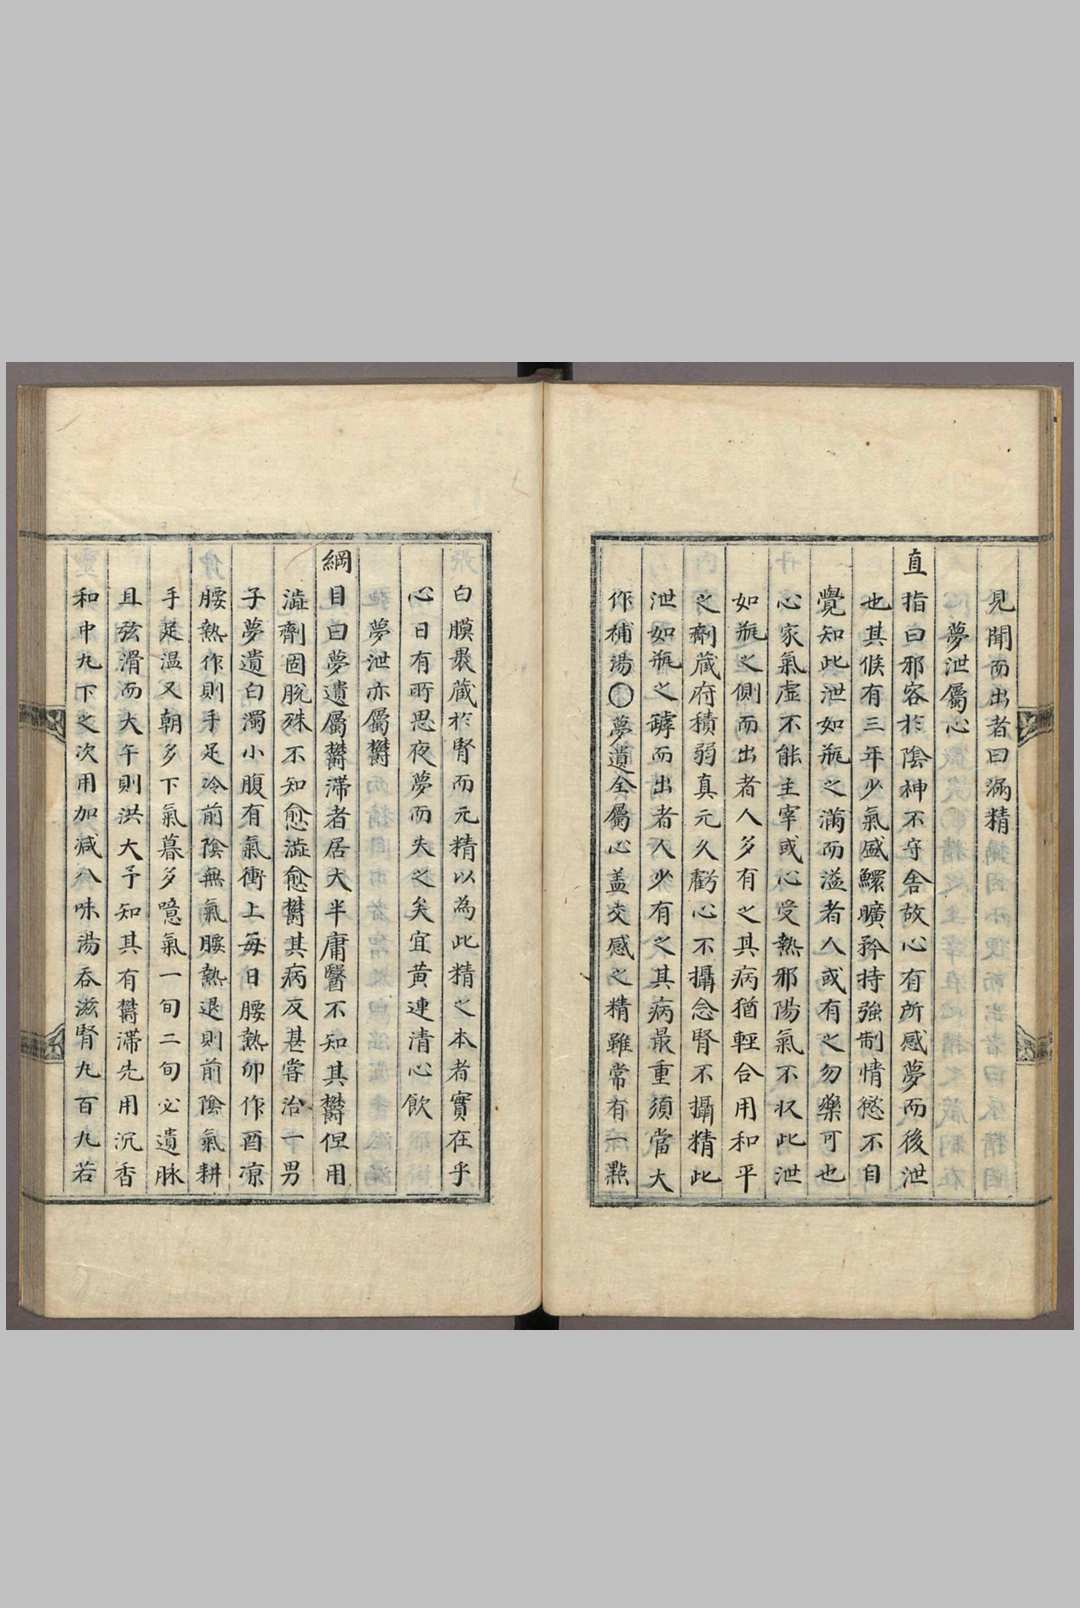 見聞而出者曰漏精
夢泄屬心
直指曰邪客於陰神不守舍故心有所感夢而後泄
也其候有三年少氣盛鰥曠矜持強制情慾不自
覺知此泄如瓶之滿而溢者人或有之勿藥可也
心家氣虛不能主宰或心受熱邪陽氣不収此泄
如瓶之側而出者人多有之其病猶輕合用和平
之劑藏府積弱真元久虧心不攝念腎不攝精此
泄如瓶之罅而出者人少有之其病最重須當大
作補湯〇夢遺全屬心盖交感之精雖常有一㸃
白膜裹藏於腎而元精以為此精之本者實在乎
心日有所思夜夢而失之矣宜黄連清心飲
夢泄亦屬鬱
綱目曰夢遺屬鬱滯者居大半庸醫不知其鬱但用
澁劑固脫殊不知愈澁愈鬱其病反甚嘗治一男
子夢遺白濁小腹有氣衝上每日腰熱卯作酉凉
腰熱作則手足冷前陰無氣腰熱退則前陰氣耕
手足温又朝多下氣暮多噫氣一旬二旬必遺脉
且弦滑而大午則洪大予知其有鬱滯先用沉香
和中丸下之次用加減八味湯吞滋腎丸百丸若